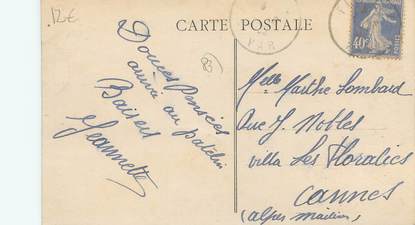 12€
CARTE POSTALE
VAR
40c
83
Douces Pensées
arrivée au patelin
Baisers
Jeannette
Melle Marthe Lombard
Rue J. Nobles
villa Les Floralies
Cannes
(alpes maritimes)